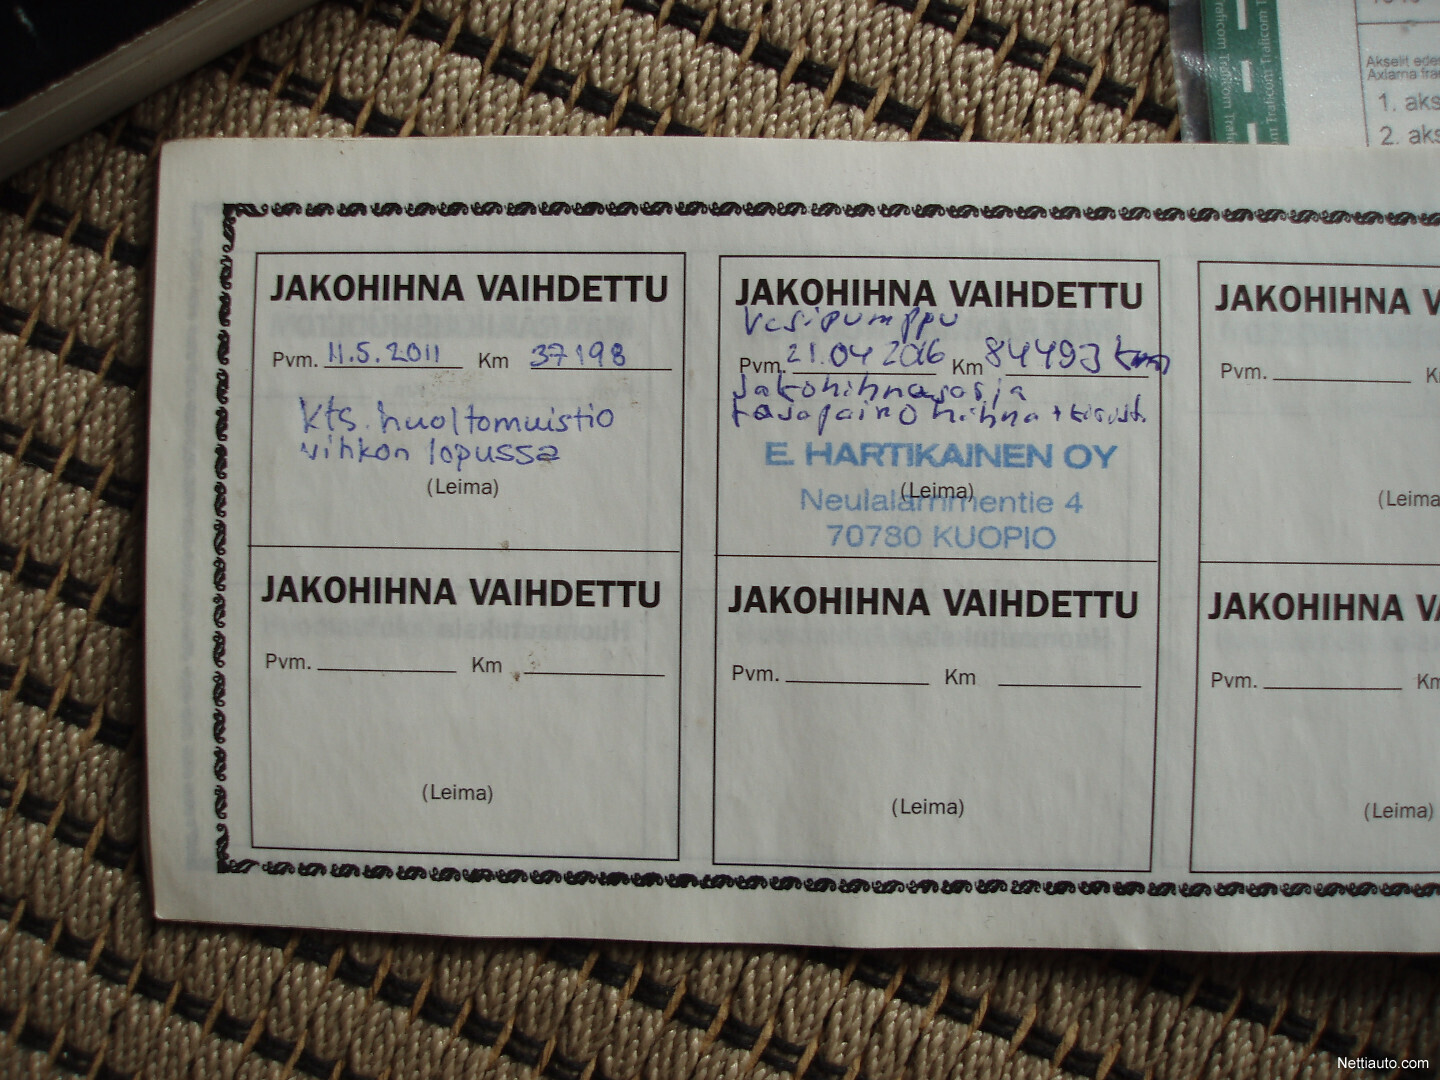 Traficom Traficom Traficom
Akselit
Axlarna
1. aks
2. aks
JAKOHIHNA VAIHDETTU
Pvm. 11.5.2011 Km 37198
kts. huoltomuistio
vihkon lopussa
(Leima)
JAKOHIHNA VAIHDETTU
Vesipumppu
Pvm. 21.04 2016 Km 84493 km
Jakohihnasarja
tasapaino hihna +
E. HARTIKAINEN OY
(Leima)
Neulalammentie 4
70780 KUOPIO
JAKOHIHNA V
Pvm.
(Leima
JAKOHIHNA VAIHDETTU
Pvm. Km
(Leima)
JAKOHIHNA VAIHDETTU
Pvm. Km
(Leima)
JAKOHIHNA VA
Pvm. Km
(Leima)
Nettiauto.com